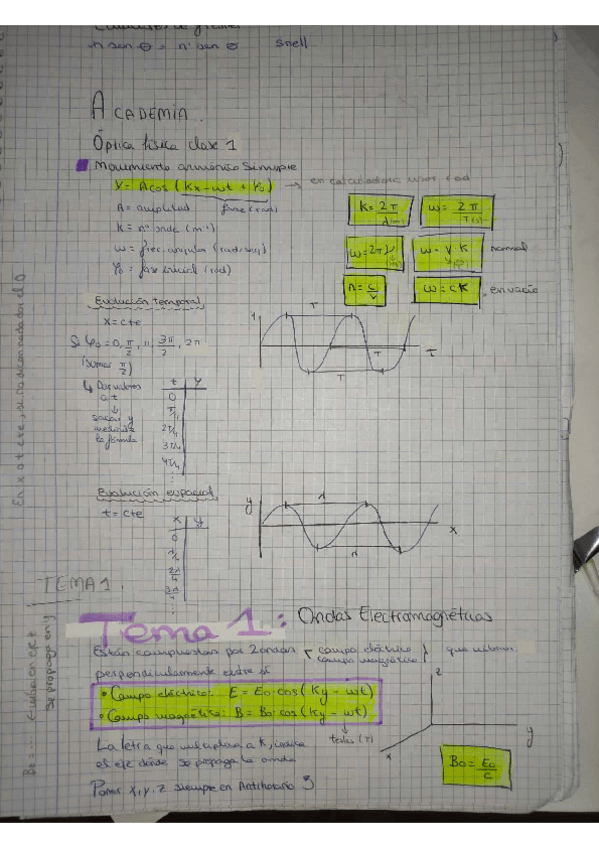 n sen θ = n' sen θ snell
ACADEMIA.
Óptica física clase 1
Movimiento armónico Simple
Y = A cos (Kx - ωt + φ₀) → en calculadora usar rad
A = amplitud fase (rad)
K = nº onda (m⁻¹)
ω = frec. angular (rad/seg)
φ₀ = fase inicial (rad)
K = 2π/λ(m) ω = 2π/T(s)
ω = 2πν ω = v·K normal
n = c/v ω = cK en vacío
Evolución temporal
x = cte
Si φ₀ = 0, π/2, π, 3π/2, 2π
(sumar π/2)
↳ Dar valores
a t
↓
sacar y
la fórmula
t y
0
T/4
2T/4
3T/4
4T/4
⋮
Y T T T T
Evolución espacial
t = cte
x y
0
λ/4
2λ/4
3λ/4
⋮
y λ λ x
TEMA 1.
Tema 1: Ondas Electromagnéticas
Están compuestas por 2 ondas campo eléctrico campo magnético que vibran
perpendicularmente entre sí
• Campo eléctrico: E = E₀·cos(Ky - ωt)
• Campo magnético: B = B₀·cos(Ky - ωt)
La letra que multiplica a K, indica
el eje donde se propaga la onda
Poner x, y, z siempre en Antihorario
z
y
x
B₀ = E₀/c
Se propaga en y